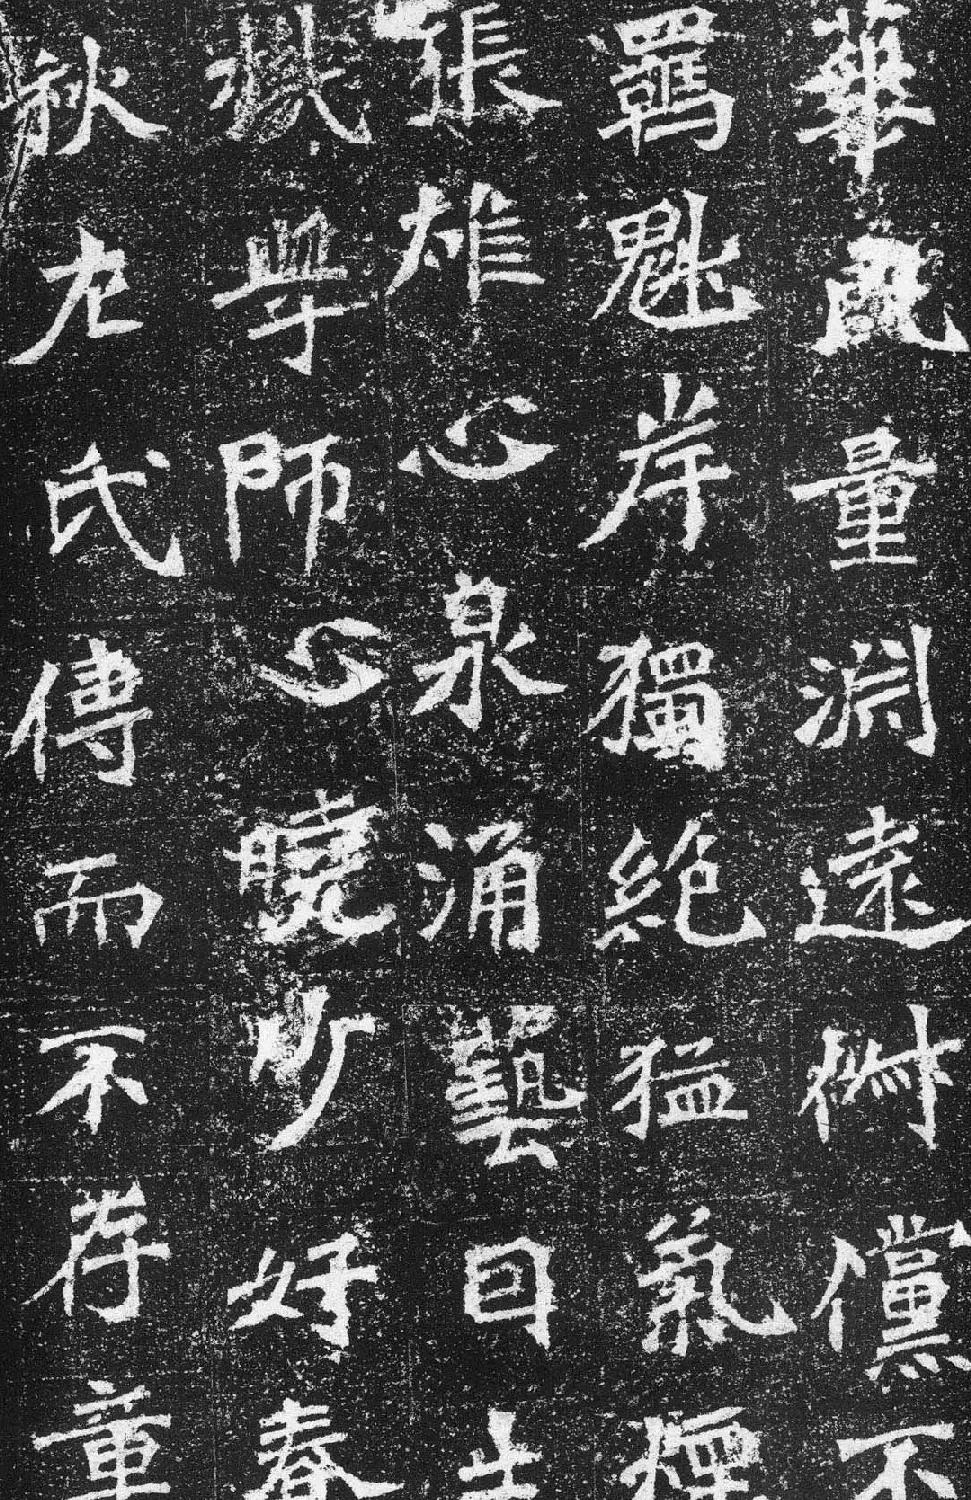 華量淵遠倜儻不
羈魁岸獨絕猛氣煙
張雄心泉涌藝因
學師心曉少好春
秋左氏傳而不存章